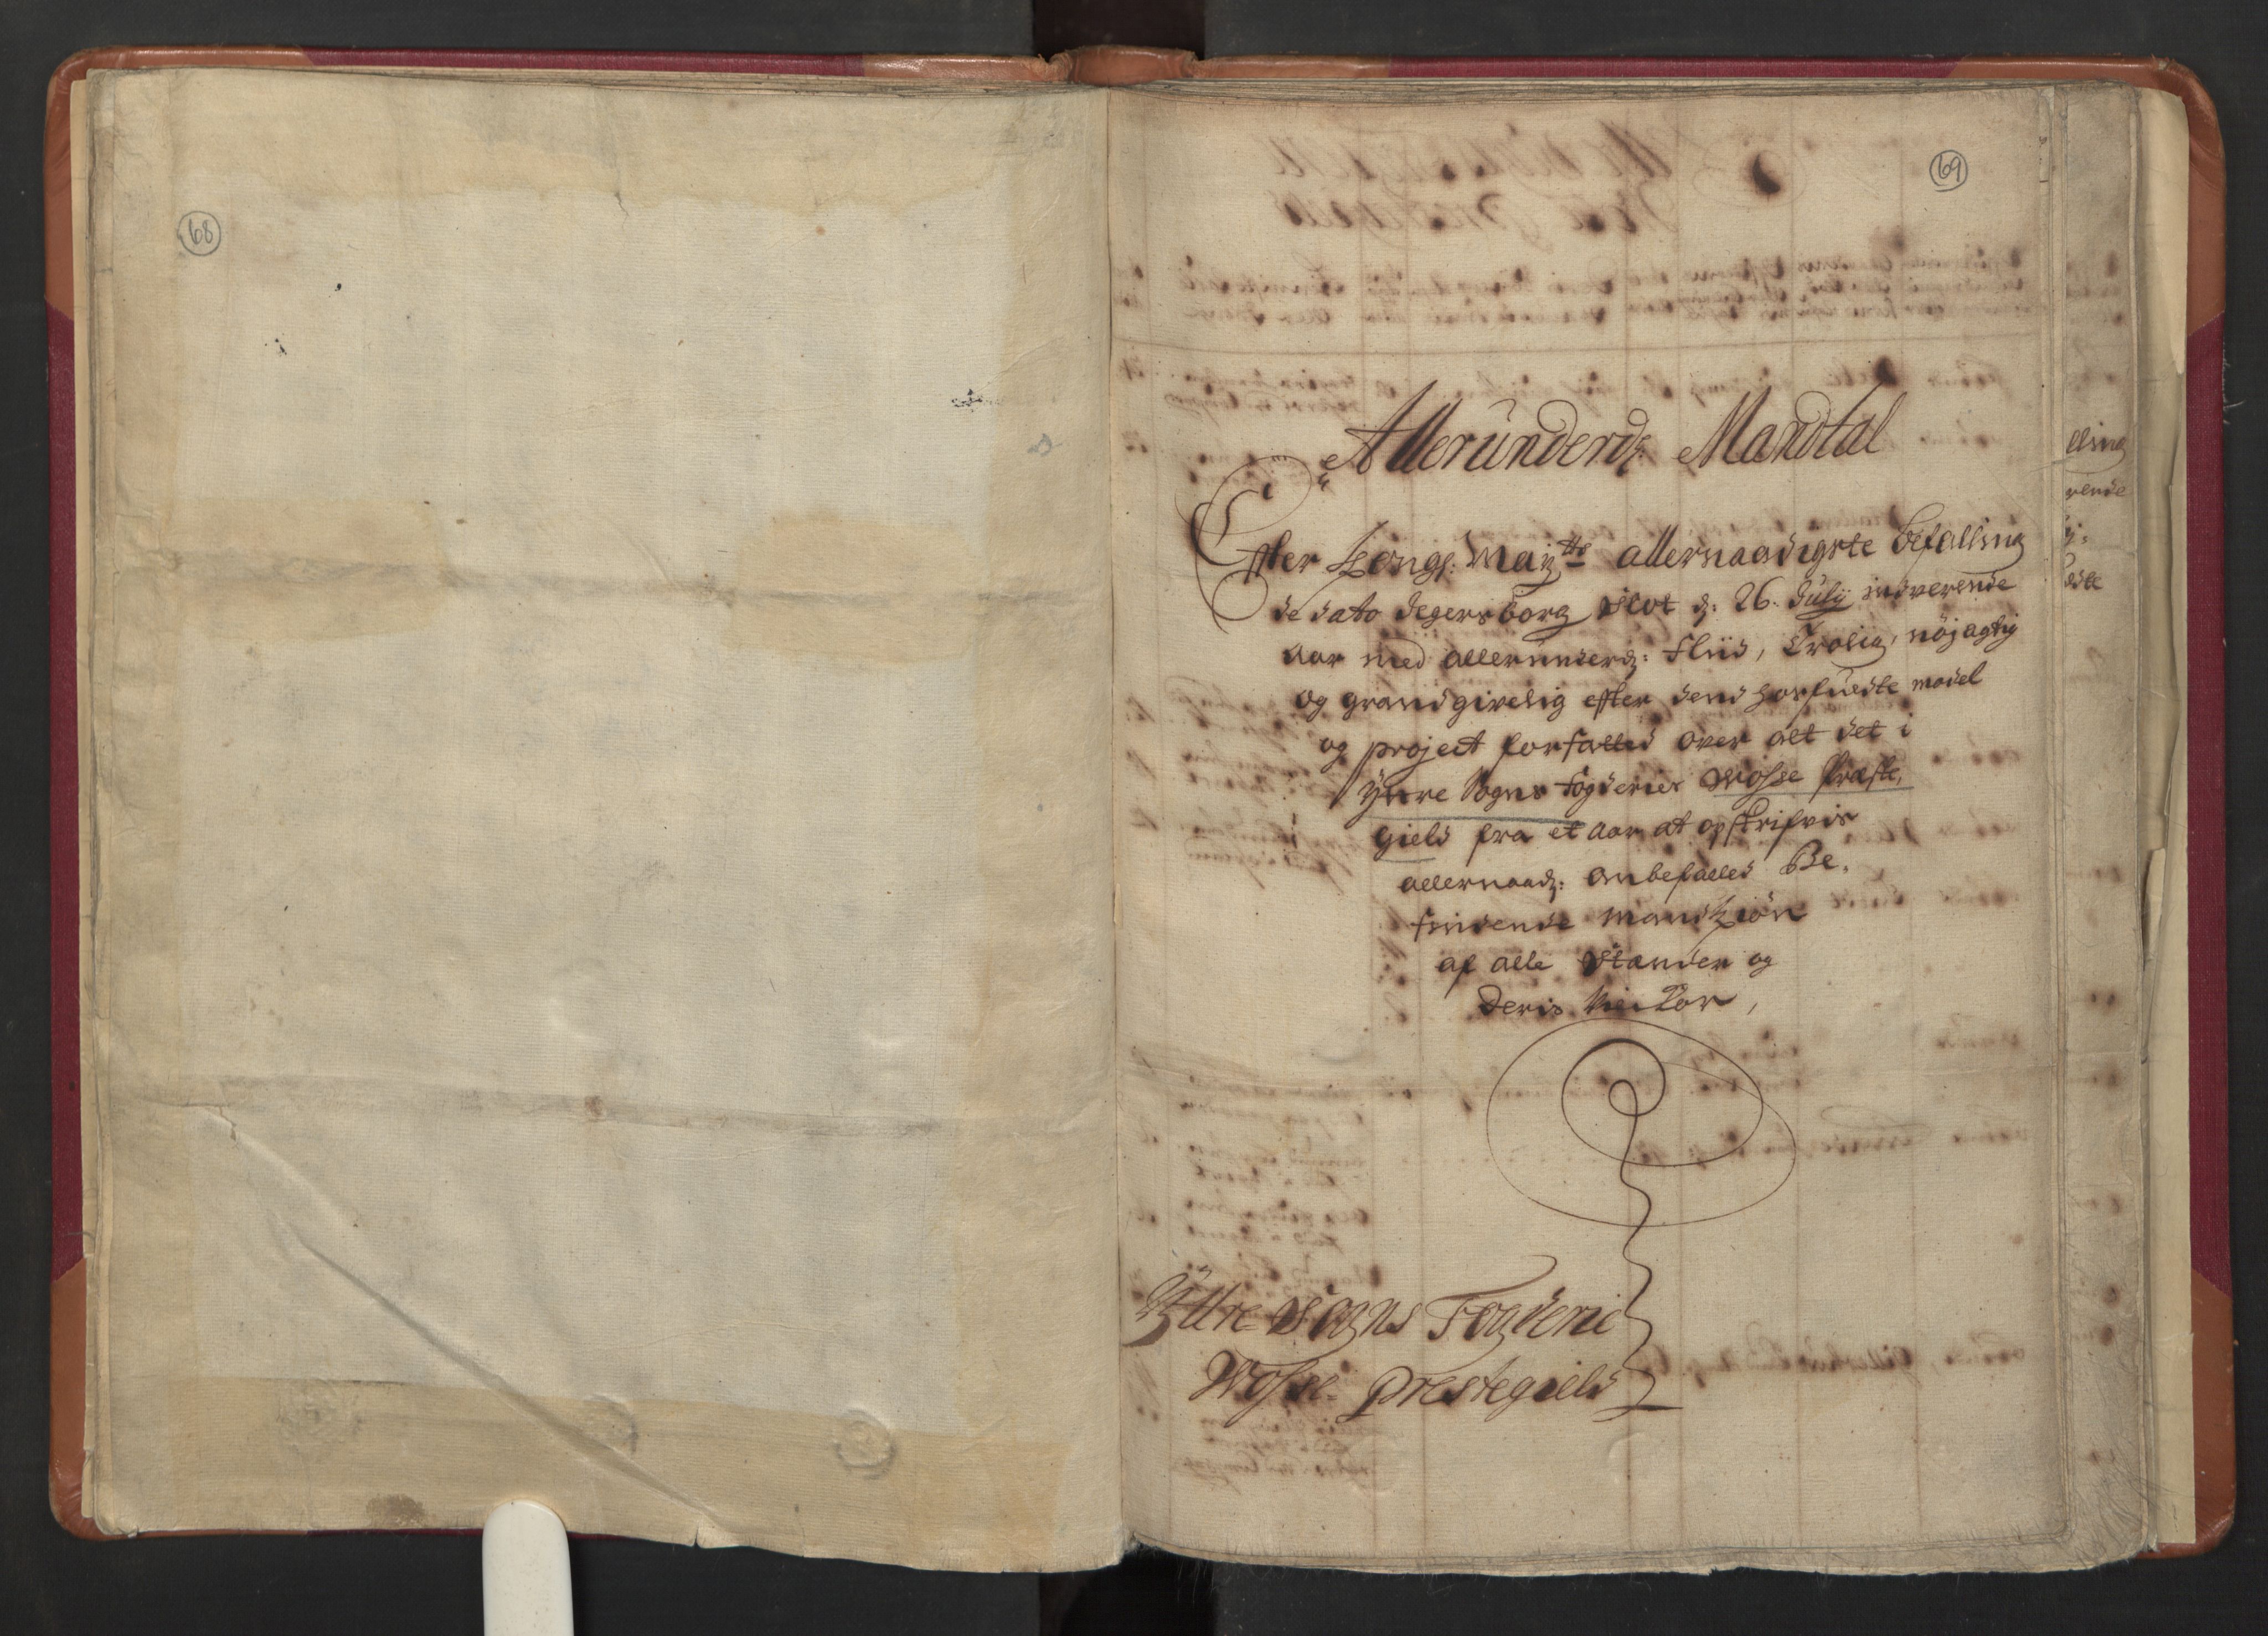 68
69
Allerunderdj: Mandtal
Effter Kongl: May:tts allernaadigste befalling
de dato Jegersborg Slot d: 26. Julij indverende
aar med allerunderdj: fliid, Trolig, nöjagtig
og grandgivelig effter dend hosfuedte model
og project forfatted over alt det i
Yttre Sogns Fogderies Wosse Præste,
gield fra et aar at opskrifvis
allernaadj: anbefalled Be,
findende Mandkiön
af alle Stænder og
Deris Vilkor,
Yttre Sogns Fogderie
Wosse Prestegield